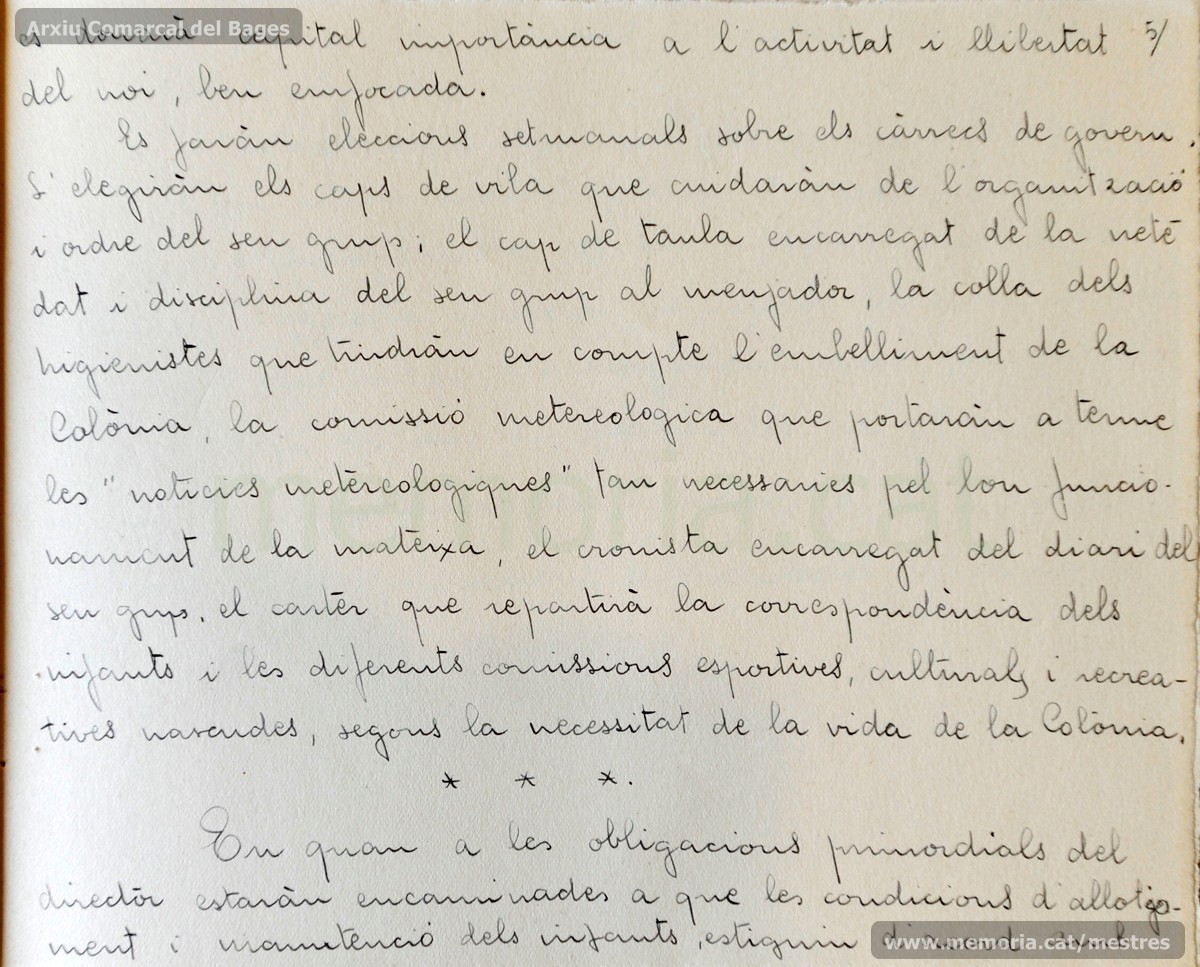 Arxiu Comarcal del Bages
es donarà capital importància a l'activitat i llibertat 5/
del noi, ben emfocada.
Es faràn eleccions setmanals sobre els càrrecs de govern.
S'elegiràn els caps de vila que cuidaràn de l'organització
i ordre del seu grup; el cap de taula encarregat de la nete
dat i disciplina del seu grup al menjador, la colla dels
higienistes que tindràn en compte l'embelliment de la
Colònia, la comissió metereologica que portaràn a terme
les "noticies metèreologiques" tan necessaries pel bon funcio-
nament de la mateixa, el cronista encarregat del diari del
seu grup, el cartèr que repartirà la correspondència dels
infants i les diferents comissions esportives, culturals i recrea-
tives nascudes, segons la necessitat de la vida de la Colònia.
* * *.
En quan a les obligacions primordials del
directòr estaràn encaminades a que les condicions d'allotja-
ment i manutenció dels infants, estiguin d'acord amb
memoria.cat
www.memoria.cat/mestres